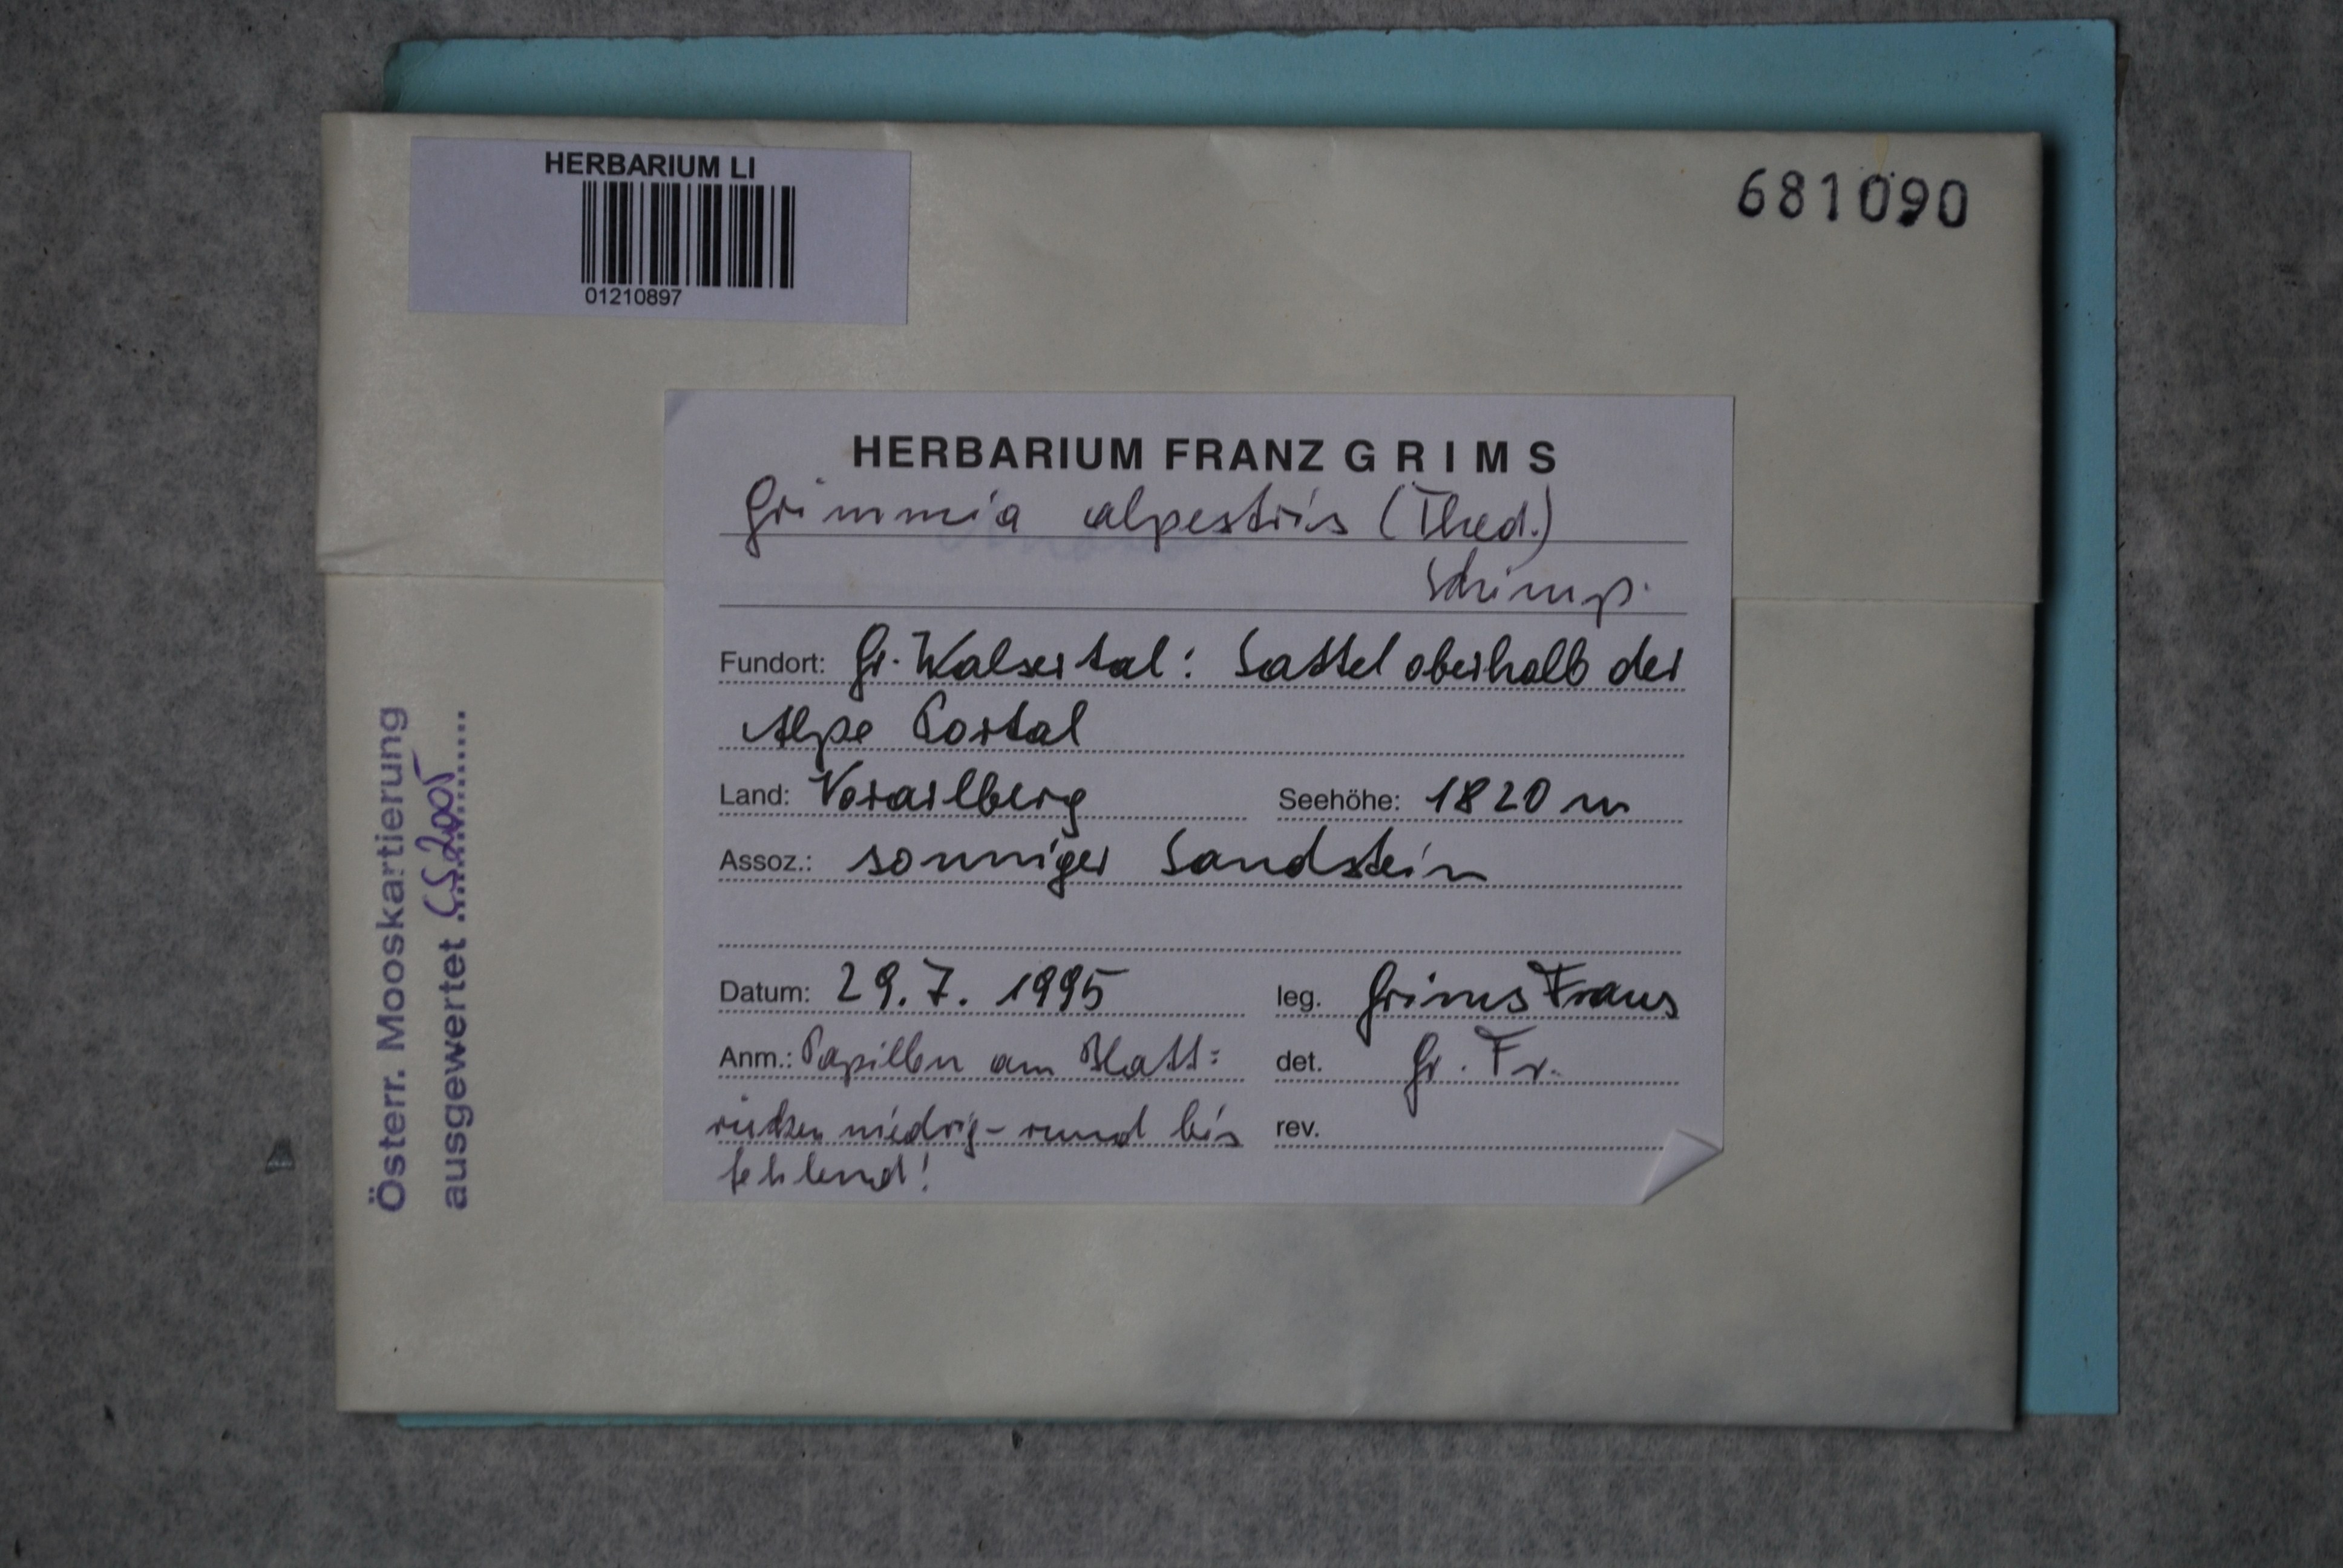 HERBARIUM LI
01210897
681090
HERBARIUM FRANZ GRIMS
Grimmia alpestris (Thed.)
Schimp.
Fundort: Gr. Walsertal: Sattel oberhalb der
Alpe Portal
Land: Vorarlberg Seehöhe: 1820 m
Assoz.: sonniger Sandstein
Datum: 29.7.1995 leg. Grims Franz
Anm.: Papillen am Blatt= det. Gr. Fr.
rücken niedrig-rund bis rev.
fehlend!
Österr. Mooskartierung
ausgewertet CS 2005